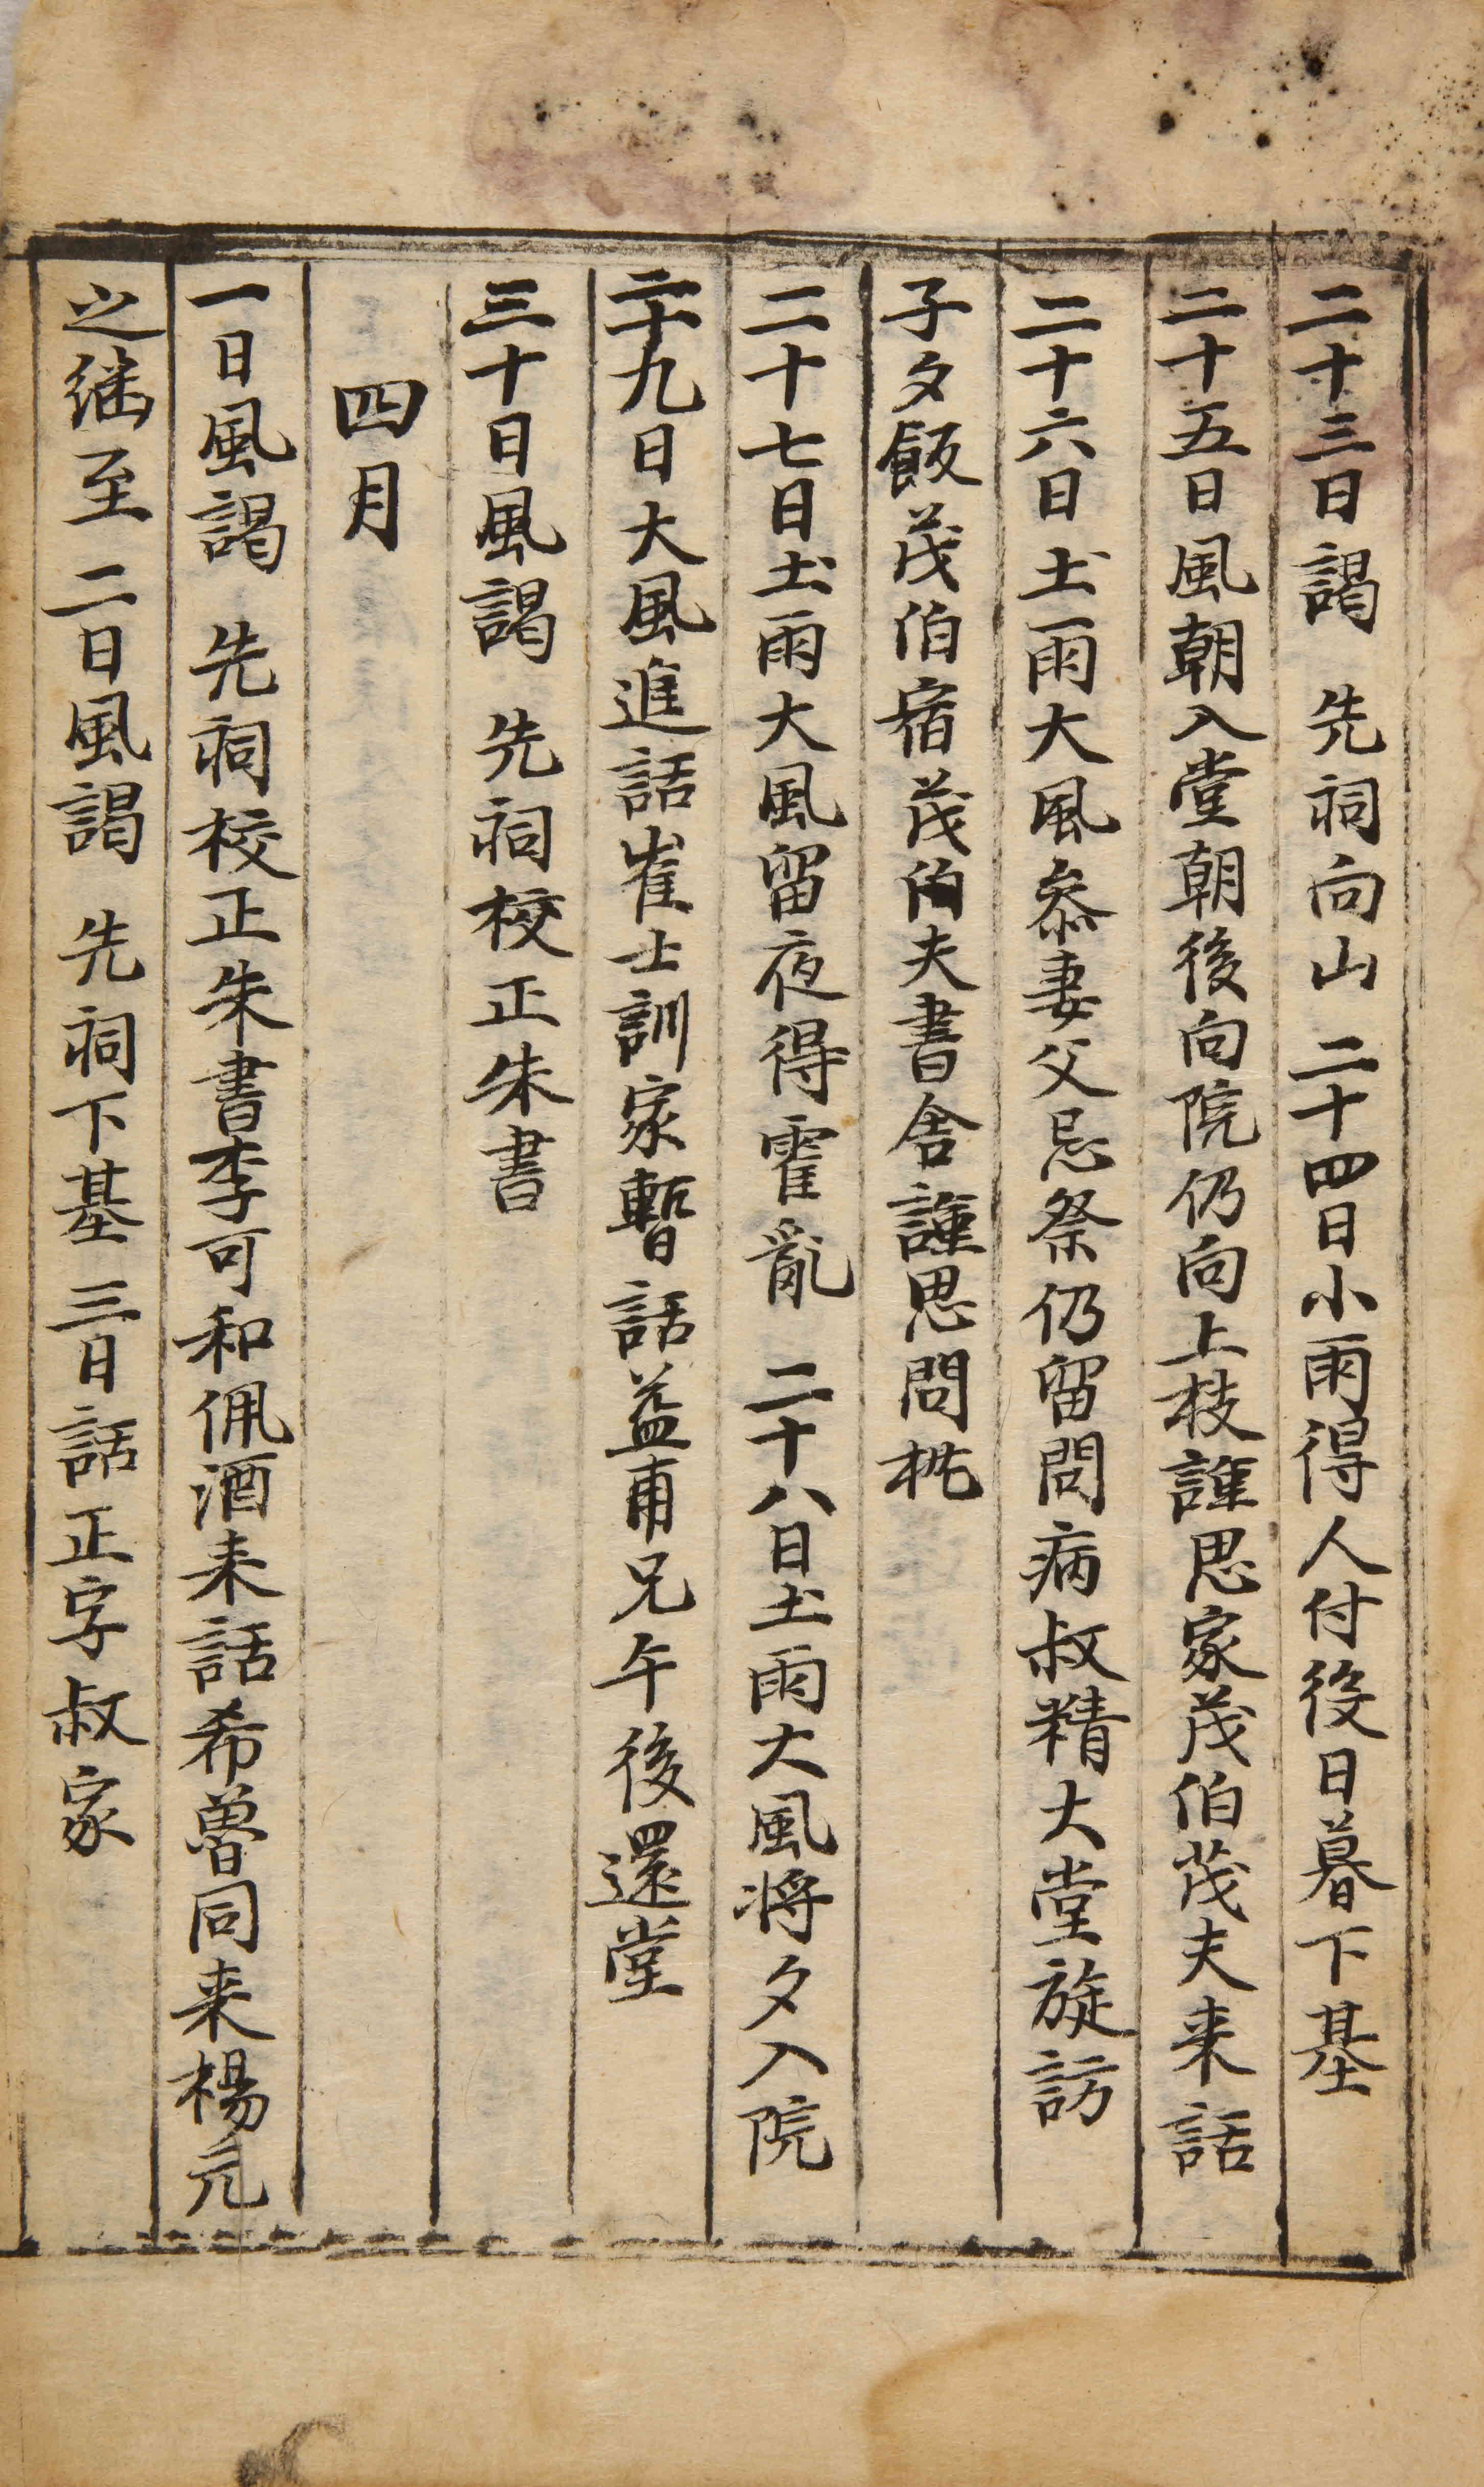 二十三日謁 先祠向山 二十四日小雨得人付役日暮下基
二十五日風朝入堂朝後向院仍向上枝謹思家茂伯茂夫来話
二十六日土雨大風叅妻父忌祭仍留問病叔精大堂旋訪
子夕飯茂伯宿茂伯夫書舎謹思問枕
二十七日土雨大風留夜得霍亂 二十八日土雨大風将夕入院
二十九日大風進話崔士訓家暫話益甫兄午後還堂
三十日風謁 先祠校正朱書
四月
一日風謁 先祠校正朱書李可和佩酒来話希魯同来楊元
之継至 二日風謁 先祠下基 三日話正字叔家